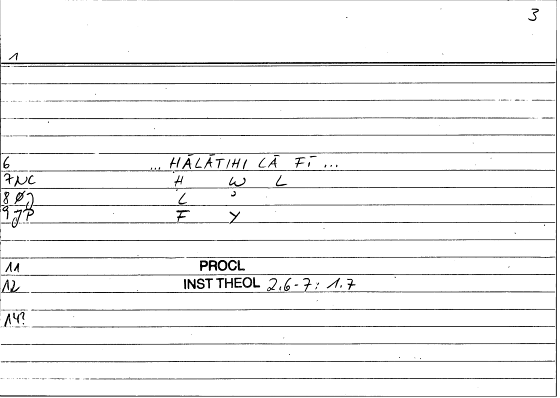 3
1
6 ... HĀLĀTIHI LĀ FĪ ...
7NC H W L
8 L ʾ
9JP F Y
11 PROCL
12 INST THEOL 2.6-7: 1.7
14?